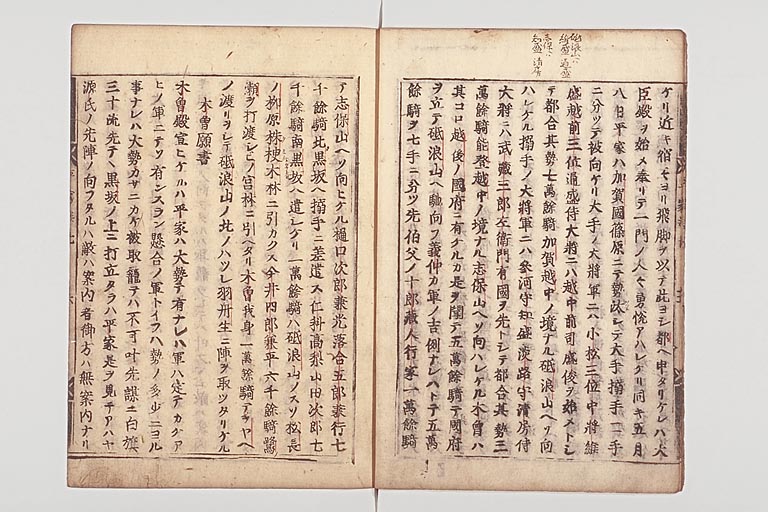 ケリ近キ宿々ヨリ飛脚ヲ以テ此ヨシ都ヘ申タリケレハ大
臣殿ヲ始メ奉リテ一門ノ人々勇悦アハレケリ同キ五月
八日平家ハ加賀國篠原ニテ勢汰シテ大手搦手二手
二分ツテ被向ケリ大手ノ大將軍ニハ小松三位中將維
盛越前三位通盛侍大將ニハ越中前司盛俊ヲ始メトシ
テ都合其勢七萬餘騎加賀越中ノ境ナル砥浪山ヘソ向
ハレケル搦手ノ大將軍ニハ參河守知盛淡路守清房侍
大將ニハ武藏三郎左衛門有國ヲ先トシテ都合其勢三
萬餘騎能登越中ノ境ナル志保山ヘソ向ハレケル木曽ハ
其コロ越後ノ國府ニ有ケルカ是ヲ聞テ五萬餘騎テ國府
ヲ立テ砥浪山ヘ馳向フ義仲カ軍ノ吉例ナレハトテ五萬
餘騎ヲ七手ニ分ツ先伯父ノ十郎藏人行家一萬餘騎
テ志保山ヘソ向ヒケル樋口次郎兼光落合五郎兼行七
千餘騎北黒坂ヘ搦手ニ差遣ス仁科高梨山田次郎七
千餘騎南黒坂ヘ遣レケリ一萬餘騎ハ砥浪山ノスソ松長
ノ柳原株梗木林ニ引カクス今井四郎兼平六千餘騎鷲
瀬ヲ打渡シヒノ宮林ニ引ヘタリ木曽我身一萬餘騎テヲヤヘ
ノ渡リヲシテ砥浪山ノ北ノハツレ羽丹生ニ陣ヲ取ツタリケル
木曽願書
木曽殿宣ヒケルハ平家ハ大勢テ有ナレハ軍ハ定テカケア
ヒノ軍ニテソ有ンスラン懸合ノ軍トイフハ勢ノ多少ニヨル
事ナレハ大勢カサニカケ被取籠テハ不可叶先謀ニ白旗
三十流先テヽ黒坂ノ上ニ打立タラハ平家是ヲ見テアハヤ
源氏ノ先陣ノ向フタルハ敵ハ案内者御方ハ無案内ナリ